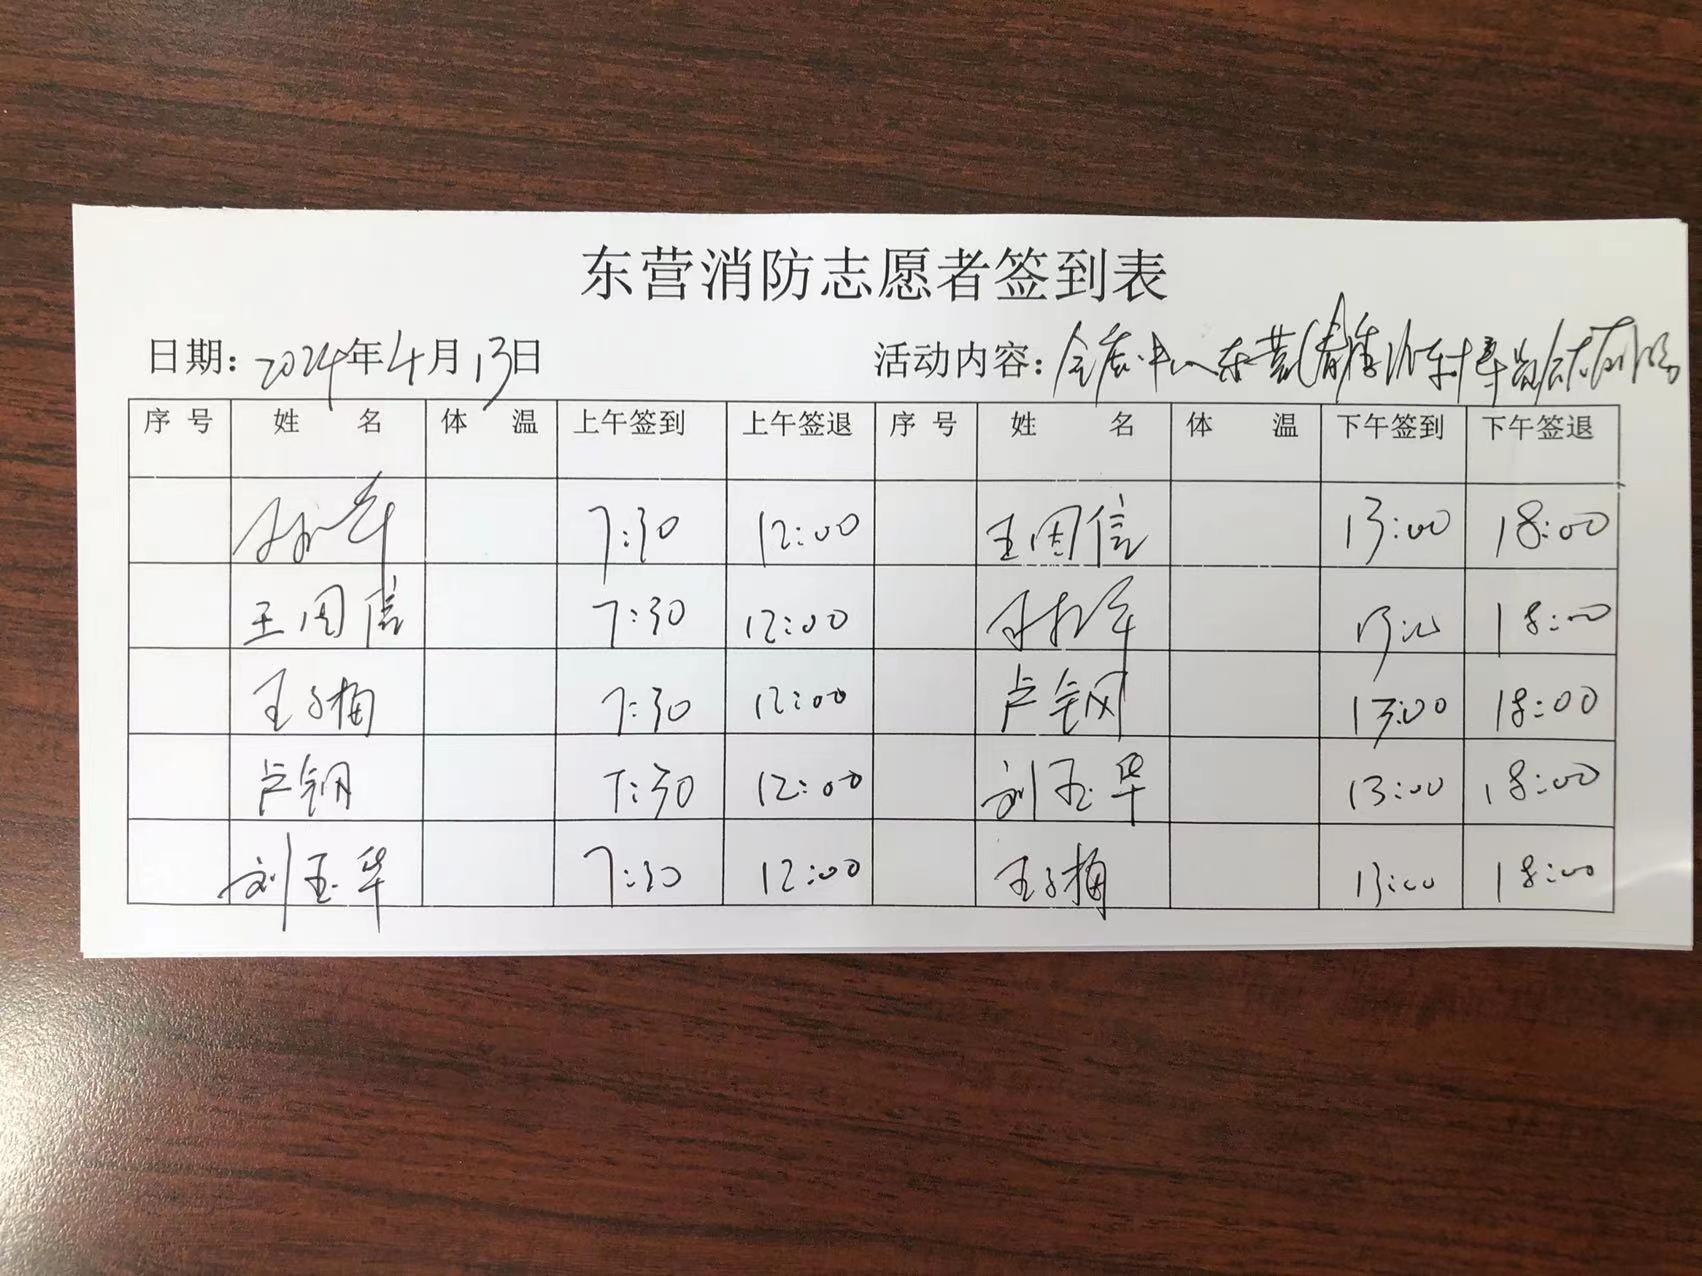 东营消防志愿者签到表
日期：2024年4月13日 活动内容：会展中心东营(春季)汽车博览会
序号 姓名 体温 上午签到 上午签退 序号 姓名 体温 下午签到 下午签退
7:30 12:00 王国信 13:00 18:00
王国信 7:30 12:00 13:00 18:00
王子梅 7:30 12:00 卢钢 13:00 18:00
卢钢 7:30 12:00 刘玉华 13:00 18:00
刘玉华 7:30 12:00 王子梅 13:00 18:00